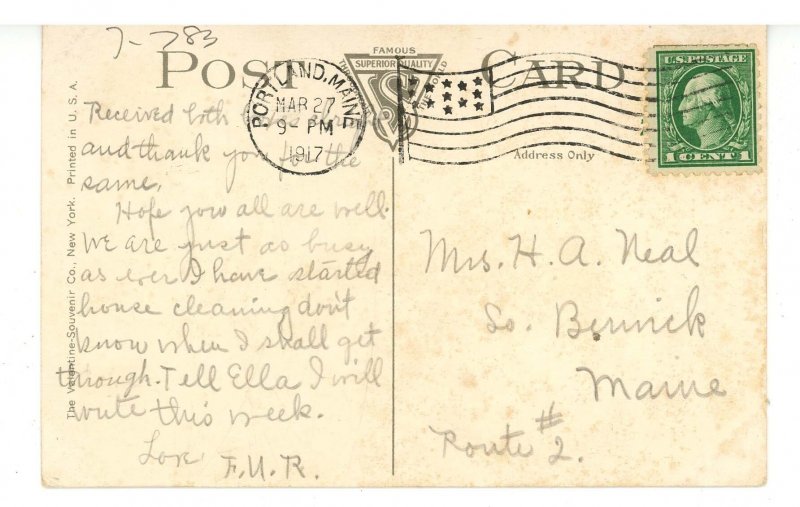 7-783
POST CARD
FAMOUS
SUPERIOR QUALITY
PORTLAND, MAINE
MAR 27
9- PM
1917
U.S. POSTAGE
1 CENT 1
Address Only
Received both
and thank you for the
same.
Hope you all are well.
We are just as busy
as ever I have started
house cleaning dont
know when I shall get
through. Tell Ella I will
write this week.
Love F.U.R.
Mrs. H. A. Neal
So. Berwick
Maine
Route #2.
The Valentine-Souvenir Co., New York. Printed in U. S. A.